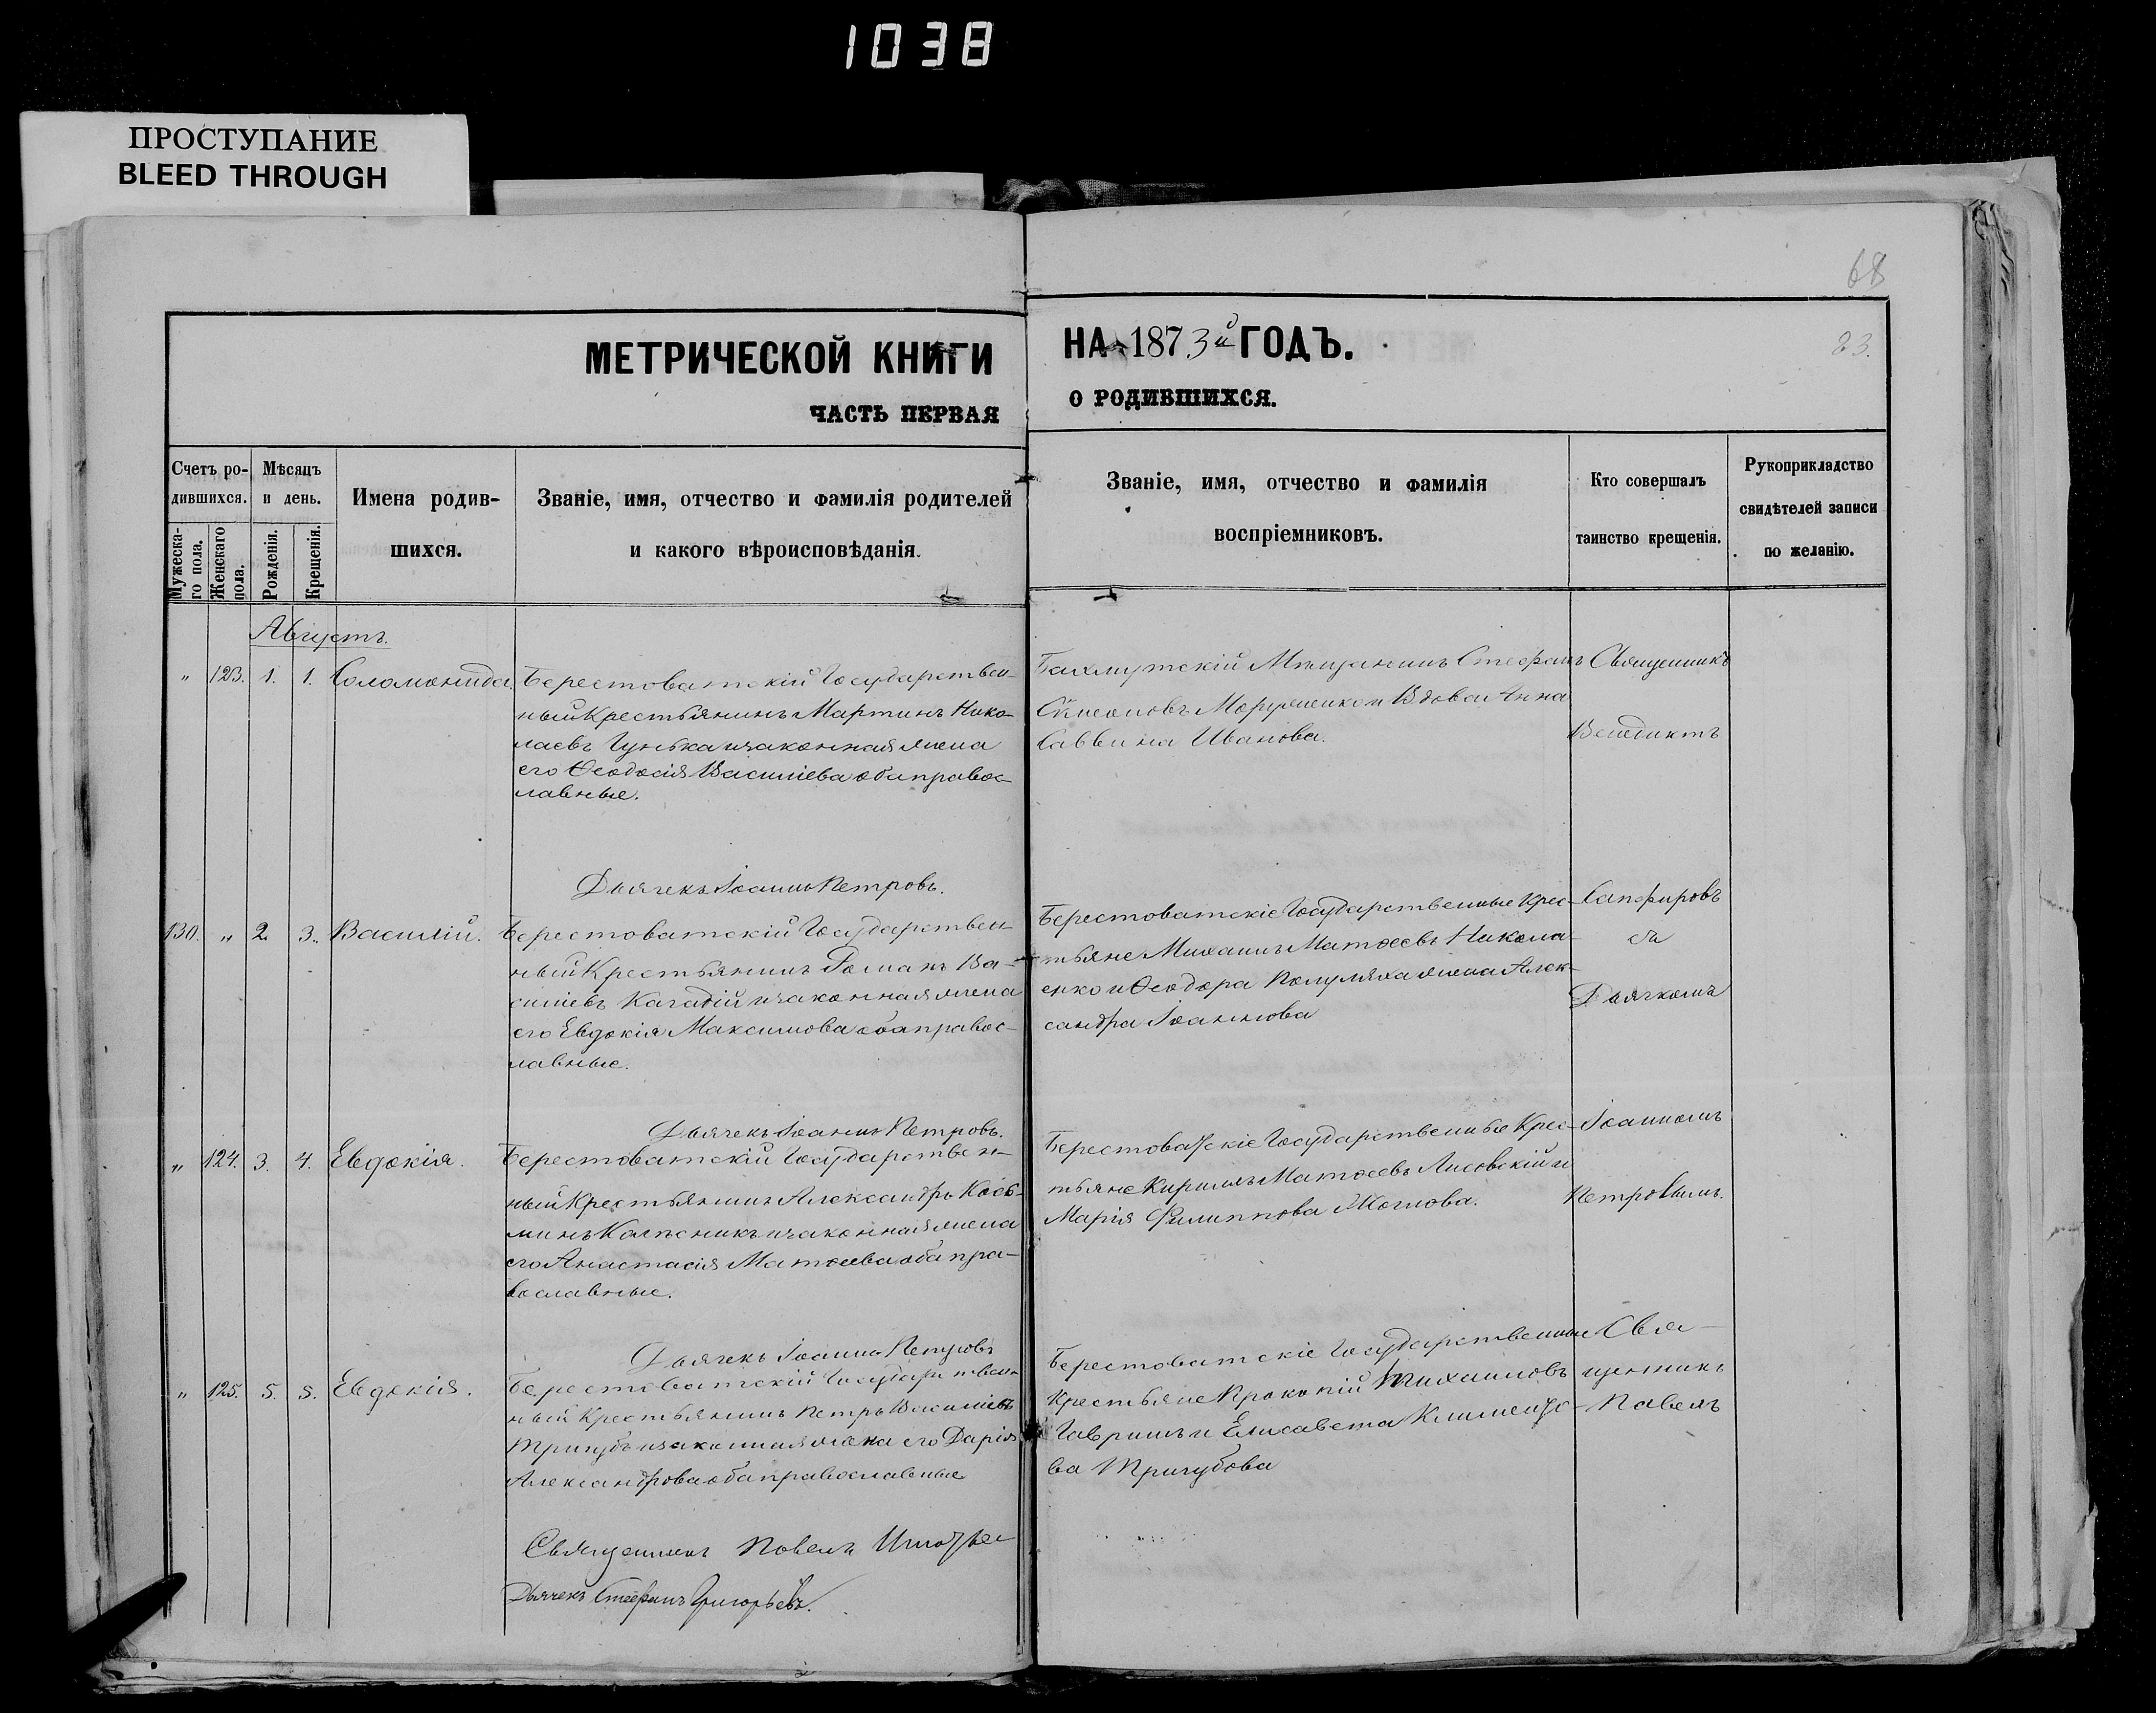 1038
ПРОСТУПАНИЕ
BLEED THROUGH
68
МЕТРИЧЕСКОЙ КНИГИ
НА 1873й ГОДЪ.
23.
ЧАСТЬ ПЕРВАЯ
О РОДИВШИХСЯ.
Счетъ ро-
дившихся.
Мужеска-
го пола.
Женскаго
пола.
Мѣсяцъ
и день.
Рожденія.
Крещенія.
Имена родив-
шихся.
Званіе, имя, отчество и фамилія родителей
и какого вѣроисповѣданія.
Званіе, имя, отчество и фамилія
воспріемниковъ.
Кто совершалъ
таинство крещенія.
Рукоприкладство
свидѣтелей записи
по желанію.
Августъ.
" 123. 1. 1. Соломонида.
Берестоватскій Государствен-
ный Крестьянинъ Мартинъ Нико-
лаевъ Гунька и законная жена
его Ѳеодосія Василіева оба правос-
лавные.
Бахмутскій Мѣщанинъ Стефанъ
Сѵмеоновъ и Вдова Анна
Саввина Иванова.
Священникъ
Венедиктъ
Дьячекъ Іоаннъ Петровъ.
130. " 2. 3. Василій.
Берестоватскій Государствен-
ный Крестьянинъ Романъ Ва-
силіевъ и законная жена
его Евдокія Максимова оба правос-
лавные.
Берестоватскіе Государственные Крес-
тьяне Михаилъ Матѳеевъ Никола-
енко и Ѳеодора жена Алек-
сандра Іоаннова
Сапфировъ
съ
Дьячкомъ
Дьячекъ Іоаннъ Петровъ.
" 124. 3. 4. Евдокія.
Берестоватскій Государствен-
ный Крестьянинъ Александръ Кось-
минъ Колесникъ и законная жена
его Анастасія Матѳеева оба пра-
вославные.
Берестоватскіе Государственные Крес-
тьяне Кириллъ Матѳеевъ Лисовскій и
Марія Филиппова
Іоанномъ
Петровымъ.
Дьячекъ Іоаннъ Петровъ
" 125. 5. 5. Евдокія.
Берестоватскій Государствен-
ный Крестьянинъ Петръ Василіевъ
Тригубъ и законная жена его Дарія
Александрова оба православные
Берестоватскіе Государственные
Крестьяне Прокопій Михаиловъ
Гавришъ и Елисавета Клименто-
ва Тригубова
Свя-
щенникъ
Павелъ
Священникъ Павелъ
Дьячекъ Стефанъ Григорьевъ.